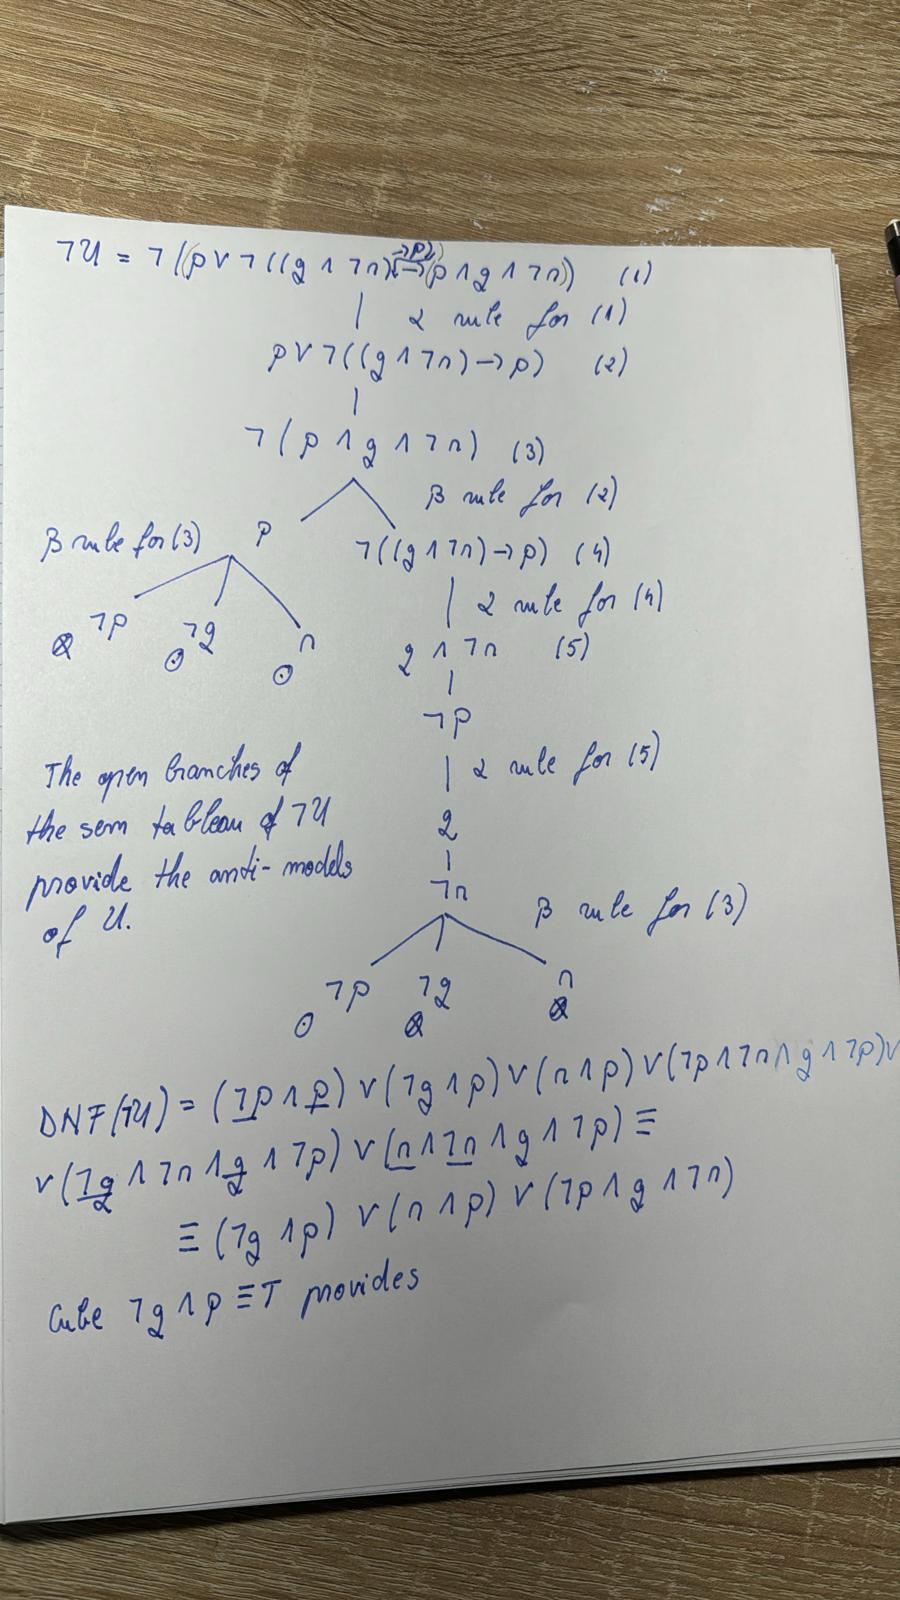 ¬U = ¬((p ∨ ¬((q ∧ ¬r) → p)) → (p ∧ q ∧ ¬r)) (1)
| α rule for (1)
p ∨ ¬((q ∧ ¬r) → p) (2)
|
¬(p ∧ q ∧ ¬r) (3)
β rule for (2)
β rule for (3) p ¬((q ∧ ¬r) → p) (4)
| α rule for (4)
¬p ¬q r
⊗ ⊙ ⊙
q ∧ ¬r (5)
|
¬p
| α rule for (5)
q
|
¬r
β rule for (3)
¬p ¬q r
⊙ ⊗ ⊗
The open branches of
the sem tableau of ¬U
provide the anti-models
of U.
DNF(¬U) = (¬p ∧ p) ∨ (¬q ∧ p) ∨ (r ∧ p) ∨ (¬p ∧ ¬r ∧ q ∧ ¬p) ∨
∨ (¬q ∧ ¬r ∧ q ∧ ¬p) ∨ (r ∧ ¬r ∧ q ∧ ¬p) ≡
≡ (¬q ∧ p) ∨ (r ∧ p) ∨ (¬p ∧ q ∧ ¬r)
Cube ¬q ∧ p ≡ T provides